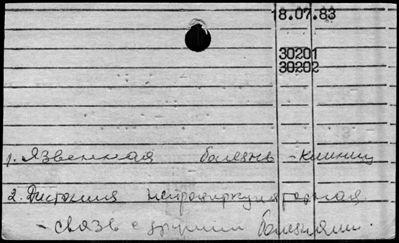 18.07.83
30201
30202
1. Язвенная болезнь - клиниц
2. Дистония нейроциркуляторная
- связь с другими болезнями.